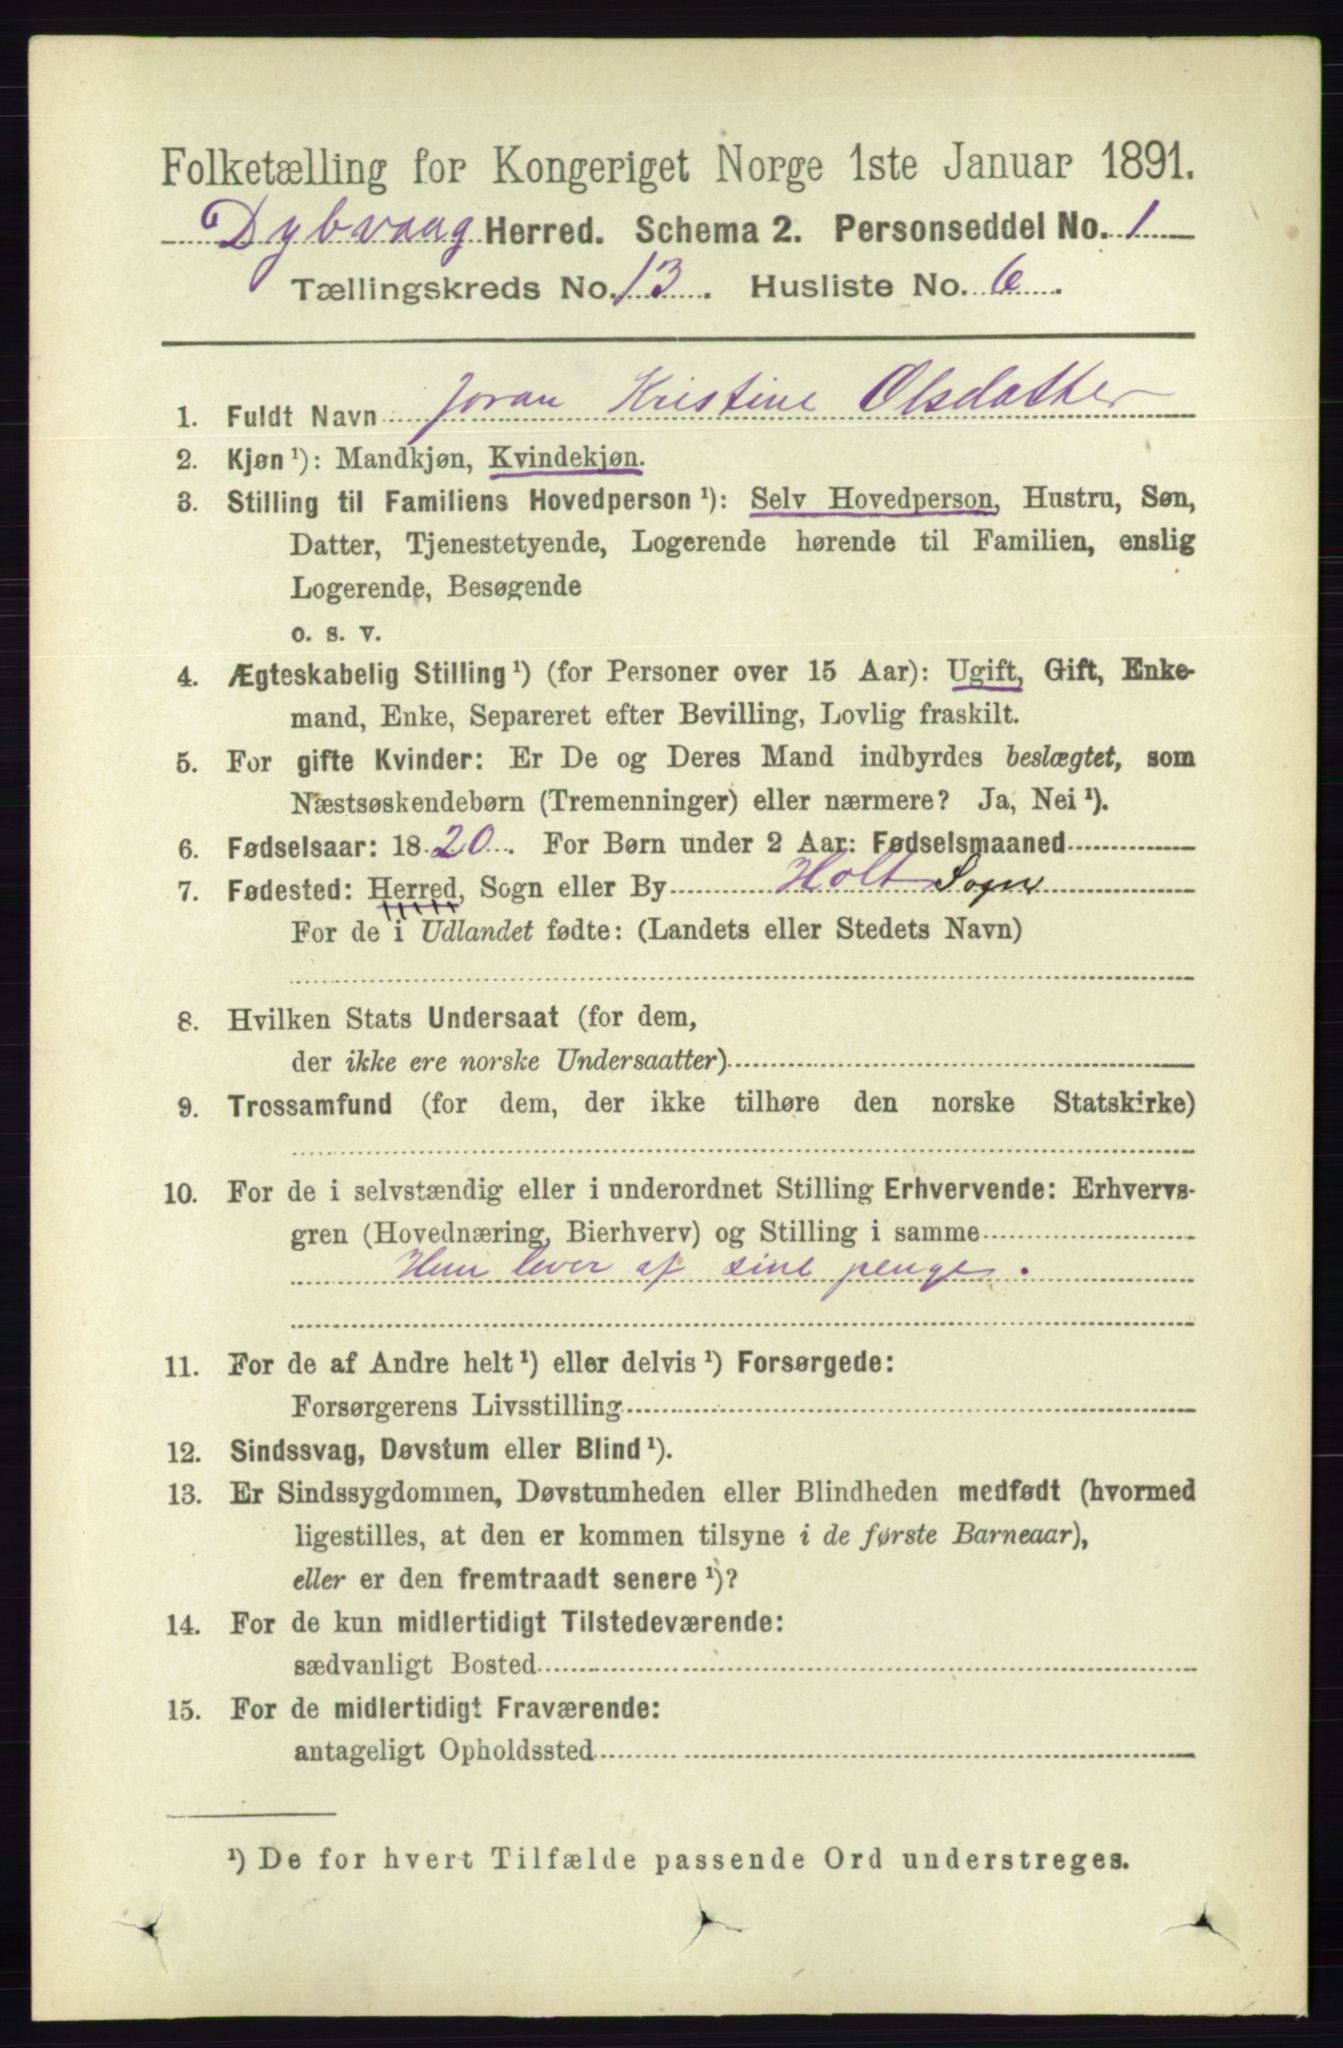 Folketælling for Kongeriget Norge 1ste Januar 1891.
Dybvaag Herred. Schema 2. Personseddel No. 1
Tællingskreds No. 13. Husliste No. 6.
1. Fuldt Navn Joran Kristine Olsdatter
2. Kjøn ¹): Mandkjøn, Kvindekjøn.
3. Stilling til Familiens Hovedperson ¹): Selv Hovedperson, Hustru, Søn,
Datter, Tjenestetyende, Logerende hørende til Familien, enslig
Logerende, Besøgende
o. s. v.
4. Ægteskabelig Stilling ¹) (for Personer over 15 Aar): Ugift, Gift, Enke-
mand, Enke, Separeret efter Bevilling, Lovlig fraskilt.
5. For gifte Kvinder: Er De og Deres Mand indbyrdes beslægtet, som
Næstsøskendebørn (Tremenninger) eller nærmere? Ja, Nei ¹).
6. Fødselsaar: 1820. For Børn under 2 Aar: Fødselsmaaned
7. Fødested: Herred, Sogn eller By Holt Sogn
For de i Udlandet fødte: (Landets eller Stedets Navn)
8. Hvilken Stats Undersaat (for dem,
der ikke ere norske Undersaatter)
9. Trossamfund (for dem, der ikke tilhøre den norske Statskirke)
10. For de i selvstændig eller i underordnet Stilling Erhvervende: Erhvervs-
gren (Hovednæring, Bierhverv) og Stilling i samme
Hun lever af sine penge.
11. For de af Andre helt ¹) eller delvis ¹) Forsørgede:
Forsørgerens Livsstilling
12. Sindssvag, Døvstum eller Blind ¹).
13. Er Sindssygdommen, Døvstumheden eller Blindheden medfødt (hvormed
ligestilles, at den er kommen tilsyne i de første Barneaar),
eller er den fremtraadt senere ¹)?
14. For de kun midlertidigt Tilstedeværende:
sædvanligt Bosted
15. For de midlertidigt Fraværende:
antageligt Opholdssted
¹) De for hvert Tilfælde passende Ord understreges.